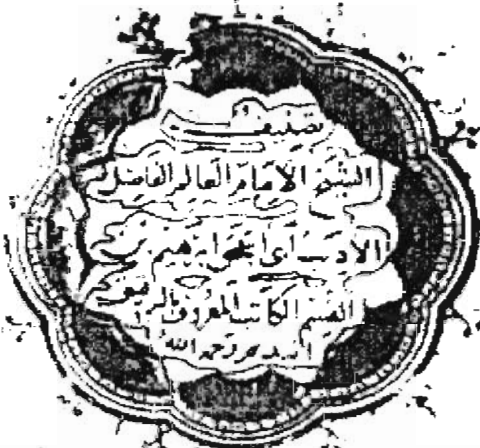 تصنيف
الشيخ الامام العالم الفاضل
الاديب ابى اسحق ابرهيم بن
القسم الكاتب المعروف بالرقيق
النديم رحمه الله